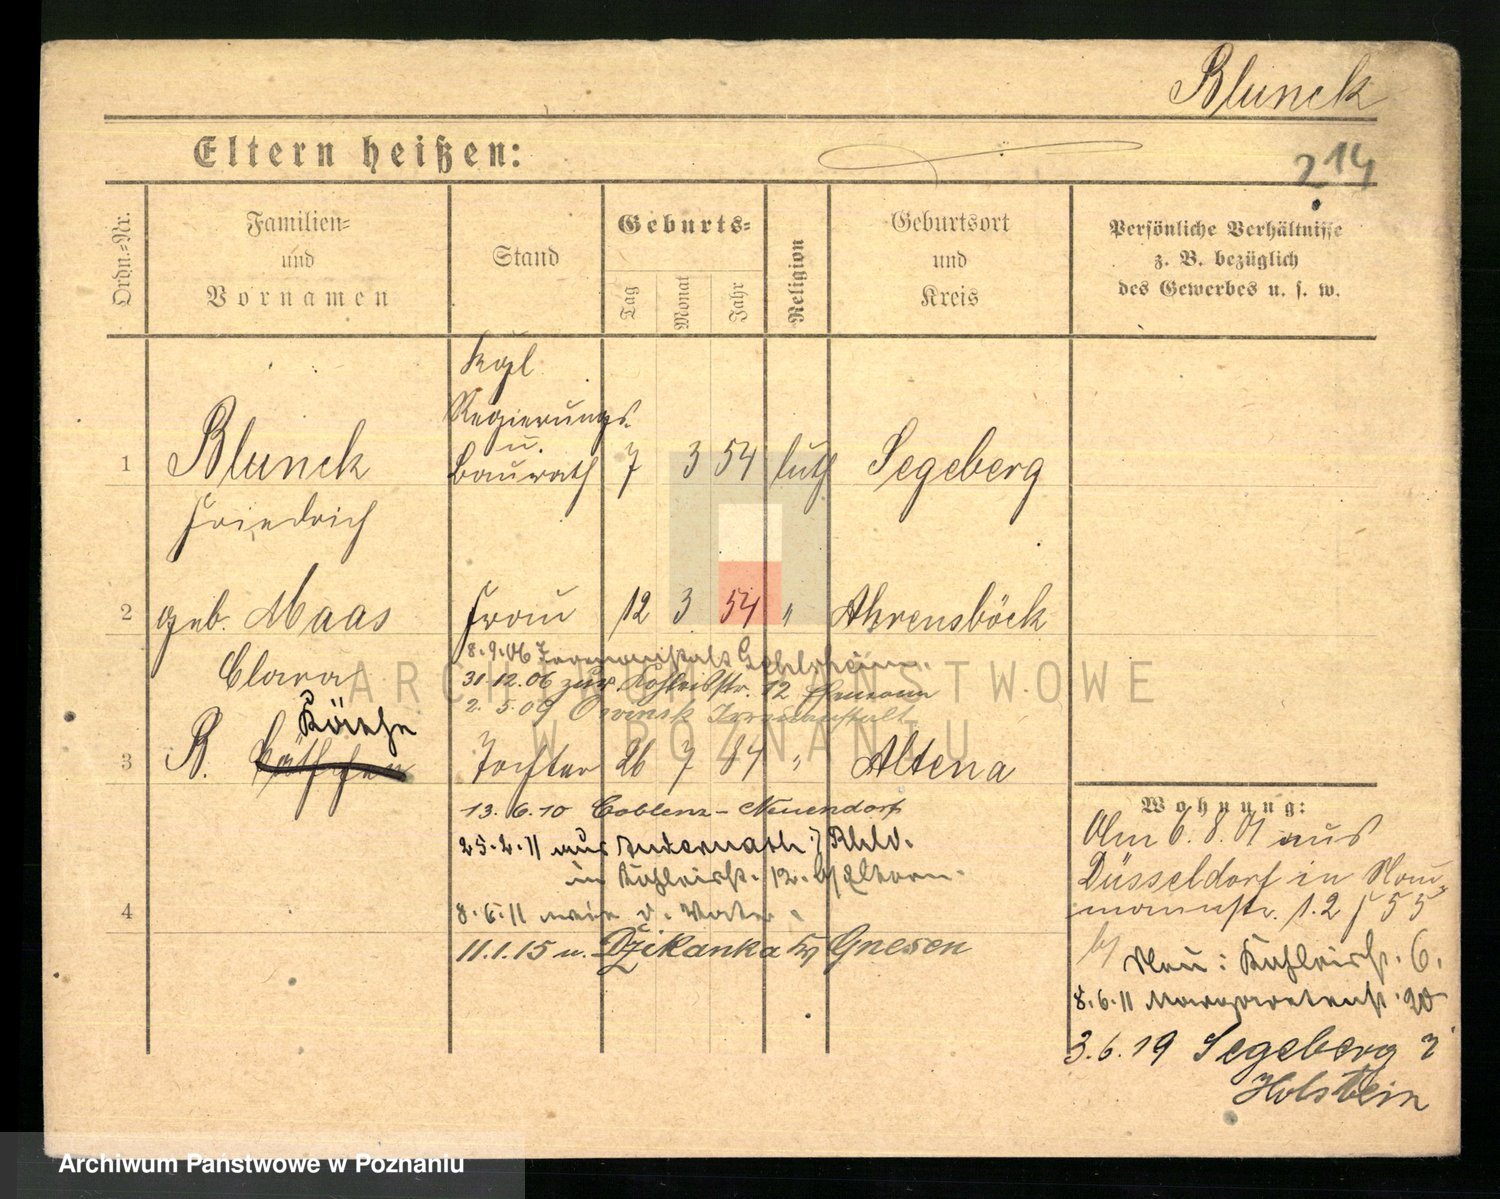 Blunck
Eltern heißen:
214
Ordn.-Nr.
Familien-
und
Vornamen
Stand
Geburts-
Tag
Monat
Jahr
Religion
Geburtsort
und
Kreis
Persönliche Verhältnisse
z. B. bezüglich
des Gewerbes u. s. w.
Kgl
Regierungs-
u.
1 Blunck Baurath 7 3 54 luth Segeberg
Friedrich
2 geb. Maas Frau 12 3 54 " Ahrensböck
Clara
8.9.06 Irrenanstalt
31.12.06 zur 12 Ehemann
2.5.09 Owinsk Irrenanstalt
Käthe
3 B. Käthchen Tochter 26 7 84 " Altena
13.6.10 Coblenz-Neuendorf
25.2.11 aus Andernach Rhld.
in 12. b/ Eltern.
4
8.6.11 wie d. Vater
11.1.15 n. Dzikanka b/ Gnesen
Wohnung:
Am 6.8.01 aus
Düsseldorf in Nau-
mannstr. 1.2 55
b/
Neu: 6.
8.6.11 Margaretenst. 20
3.6.19 Segeberg i
Holstein
ARCHIWUM PAŃSTWOWE
W POZNANIU
Archiwum Państwowe w Poznaniu